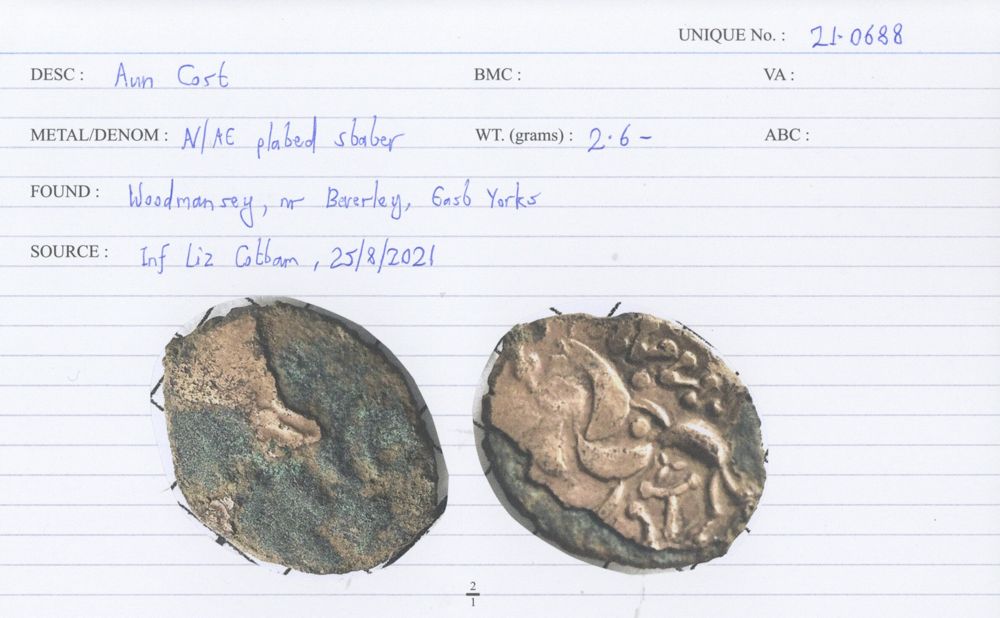 UNIQUE No. : 21-0688
DESC : Aun Cost BMC : VA :
METAL/DENOM : N/AE plated stater WT. (grams) : 2.6- ABC :
FOUND : Woodmansey, nr Beverley, East Yorks
SOURCE : Inf Liz Cottam, 25/8/2021
2
1